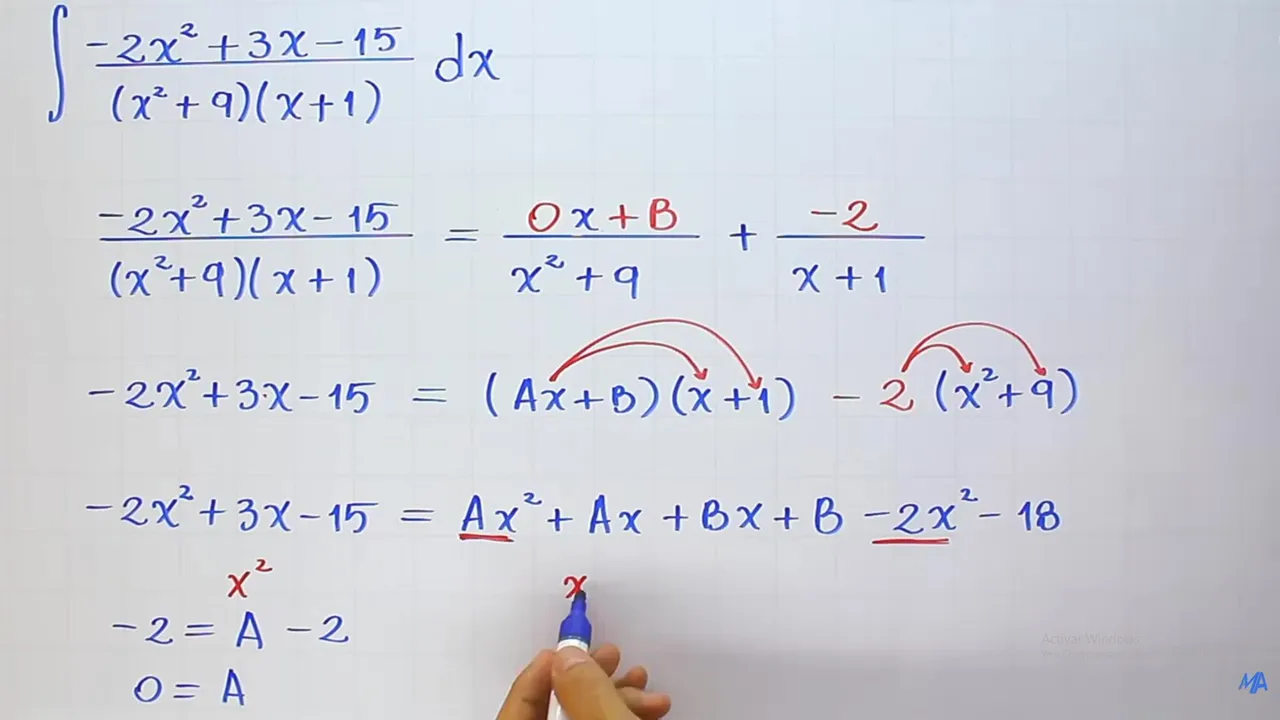 ∫ (-2x² + 3x - 15)/((x² + 9)(x + 1)) dx
(-2x² + 3x - 15)/((x² + 9)(x + 1)) = (0x + B)/(x² + 9) + (-2)/(x + 1)
-2x² + 3·x - 15 = (Ax + B)(x + 1) - 2(x² + 9)
-2x² + 3x - 15 = Ax² + Ax + Bx + B - 2x² - 18
x² x
-2 = A - 2
0 = A
Activar Windows
MA